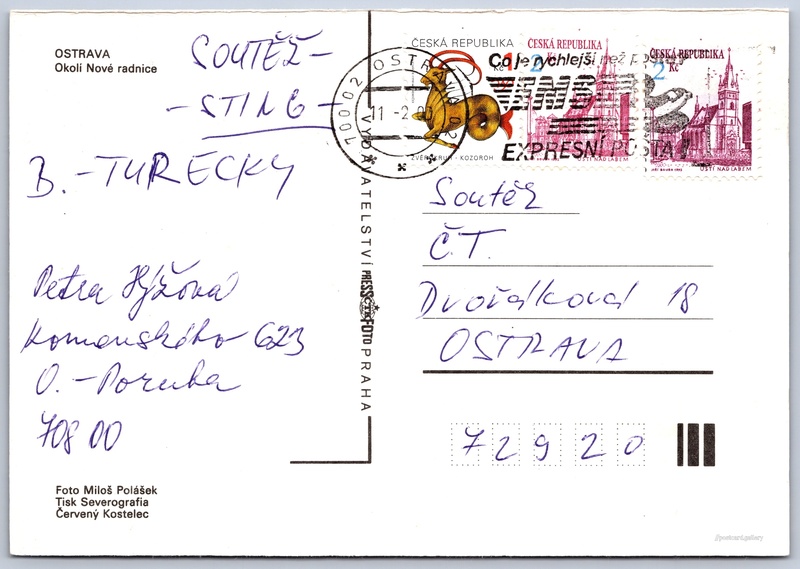 OSTRAVA
Okolí Nové radnice
SOUTĚŽ -
- STING -
B. - TURECKY
Petra Hýžová
Komenského 623
O. - Poruba
708 00
Foto Miloš Polášek
Tisk Severografia
Červený Kostelec
VYDAVATELSTVÍ PRESSFOTO PRAHA
ČTK
70002 OSTRAVA 02
11.-2.00
ČESKÁ REPUBLIKA
Kč
ZVĚROKRUH - KOZOROH
ČESKÁ REPUBLIKA
2 Kč
ÚSTÍ NAD LABEM
ČESKÁ REPUBLIKA
2 Kč
ÚSTÍ NAD LABEM
Co je rychlejší než pošta?
EMS
EXPRESNÍ POŠTA!
Soutěž
Č.T.
Dvořákova 18
OSTRAVA
72920
//postcard.gallery